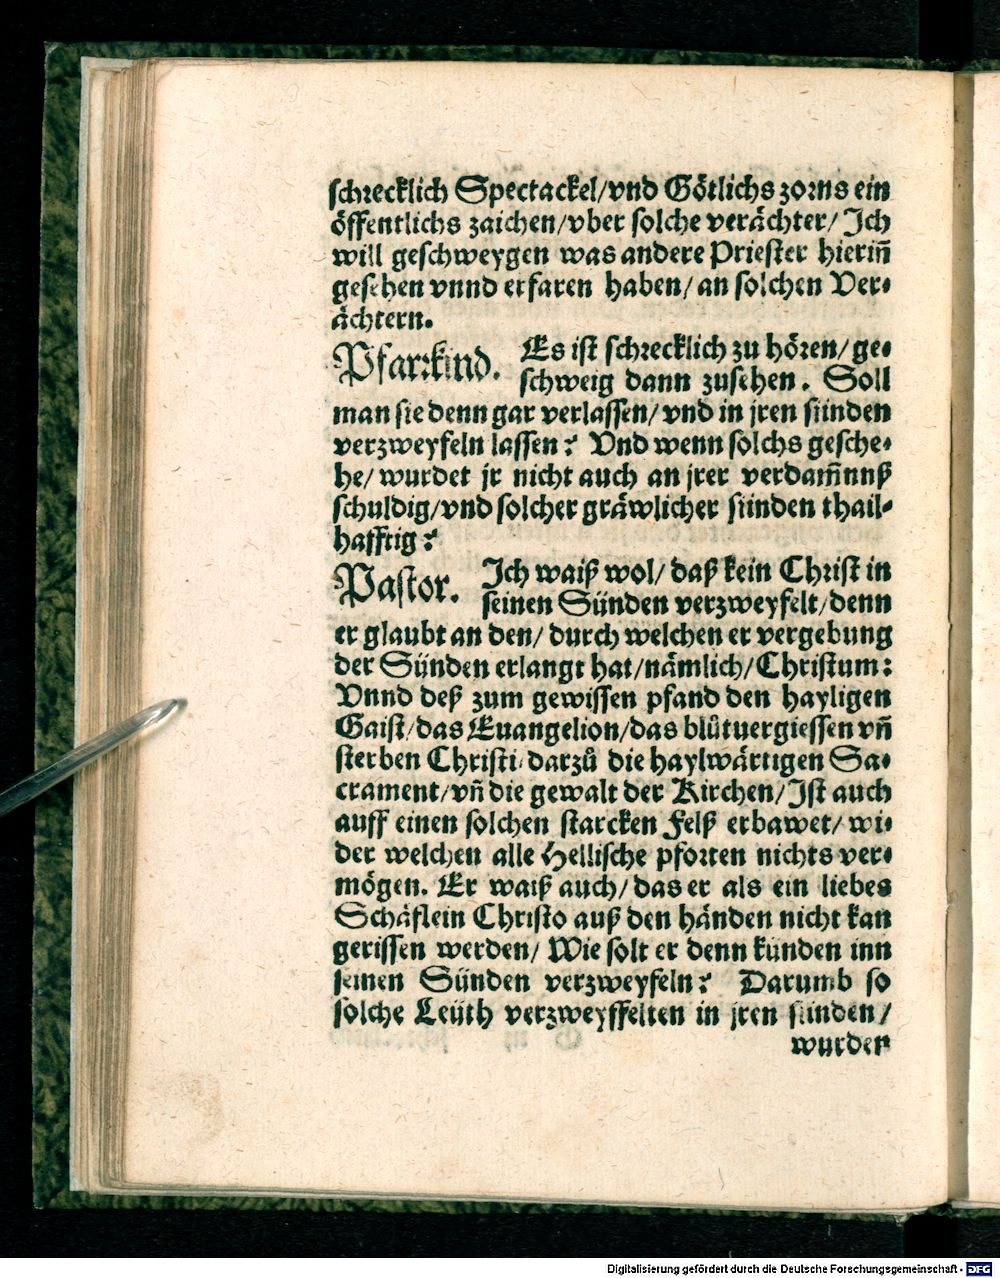 schrecklich Spectackel/vnd Götlichs zorns ein
öffentlichs zaichen/vber solche verächter/ Jch
will geschweygen was andere Priester hieriñ
gesehen vnnd erfaren haben/ an solchen Ver⸗
ächtern.
Pfarrkind. Es ist schrecklich zu hören/ ge⸗
schweig dann zusehen. Soll
man sie denn gar verlassen/ vnd in jren sünden
verzweyfeln lassen? Vnd wenn solchs gesche⸗
he/ wurdet jr nicht auch an jrer verdam̃nuß
schuldig/vnd solcher gräwlicher sünden thail⸗
hafftig?
Pastor. Jch waiß wol/ daß kein Christ in
seinen Sünden verzweyfelt/denn
er glaubt an den/ durch welchen er vergebung
der Sünden erlangt hat/nämlich/Christum:
Vnnd deß zum gewissen pfand den hayligen
Gaist/das Euangelion/das blůtuergiessen vñ
sterben Christi/ darzů die haylwärtigen Sa⸗
crament/vñ die gewalt der Kirchen/Jst auch
auff einen solchen starcken Felß erbawet/ wi⸗
der welchen alle Hellische pforten nichts ver⸗
mögen. Er waiß auch/ das er als ein liebes
Schäflein Christo auß den händen nicht kan
gerissen werden/ Wie solt er denn künden inn
seinen Sünden verzweyfeln? Darumb so
solche Leüth verzweyffelten in jren sünden/
wurden
Digitalisierung gefördert durch die Deutsche Forschungsgemeinschaft - DFG